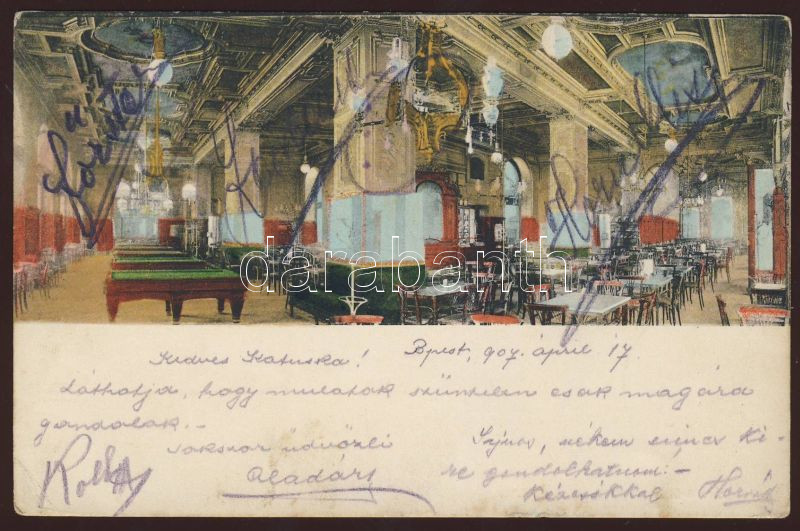 darabanth
Kedves Katuska! Bpest, 907. ápril 17.
Láthatja, hogy mulatok szüntelen csak magára
gondolok. -
sokszor üdvözli
Aladár
Sajnos, nékem nincs ki-
re gondolhatnom. -
Kézcsókkal Horváth